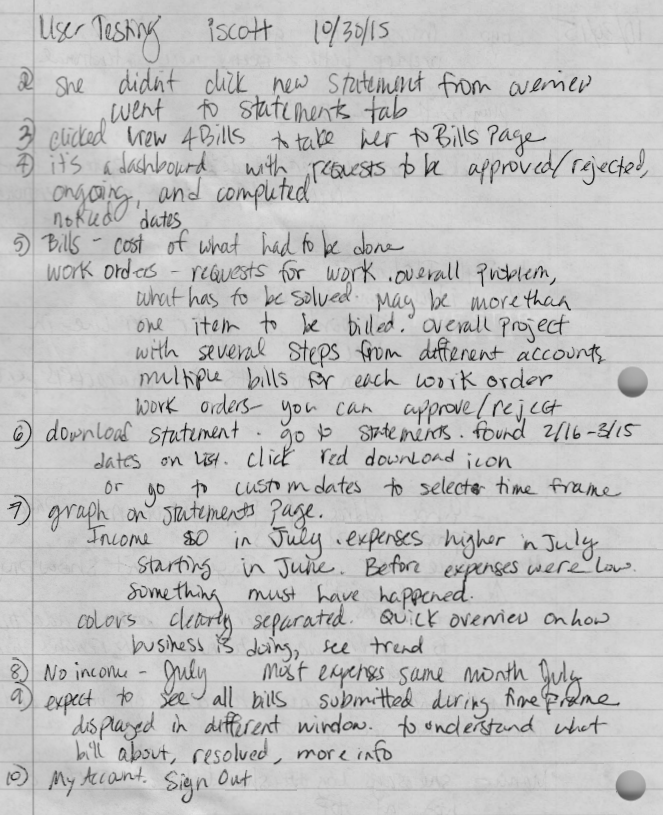 User Testing iscott 10/30/15
2) She didn't click new statement from overview
went to statements tab
3) clicked view 4 Bills to take her to Bills Page
4) it's a dashboard with requests to be approved/rejected,
ongoing, and completed
noticed dates
5) Bills - cost of what had to be done
work orders - requests for work. overall problem,
what has to be solved. May be more than
one item to be billed. overall project
with several steps from different accounts,
multiple bills for each work order
work orders - you can approve/reject
6) download statement. go to statements. found 2/16-3/15
dates on list. click red download icon
or go to custom dates to select time frame
7) graph on statements page.
Income $0 in July. expenses higher in July
starting in June. Before expenses were low.
something must have happened.
colors clearly separated. Quick overview on how
business is doing, see trend
8) No income - July most expenses same month July
9) expect to see all bills submitted during time frame
displayed in different window. to understand what
bill about, resolved, more info
10) My Account. Sign Out